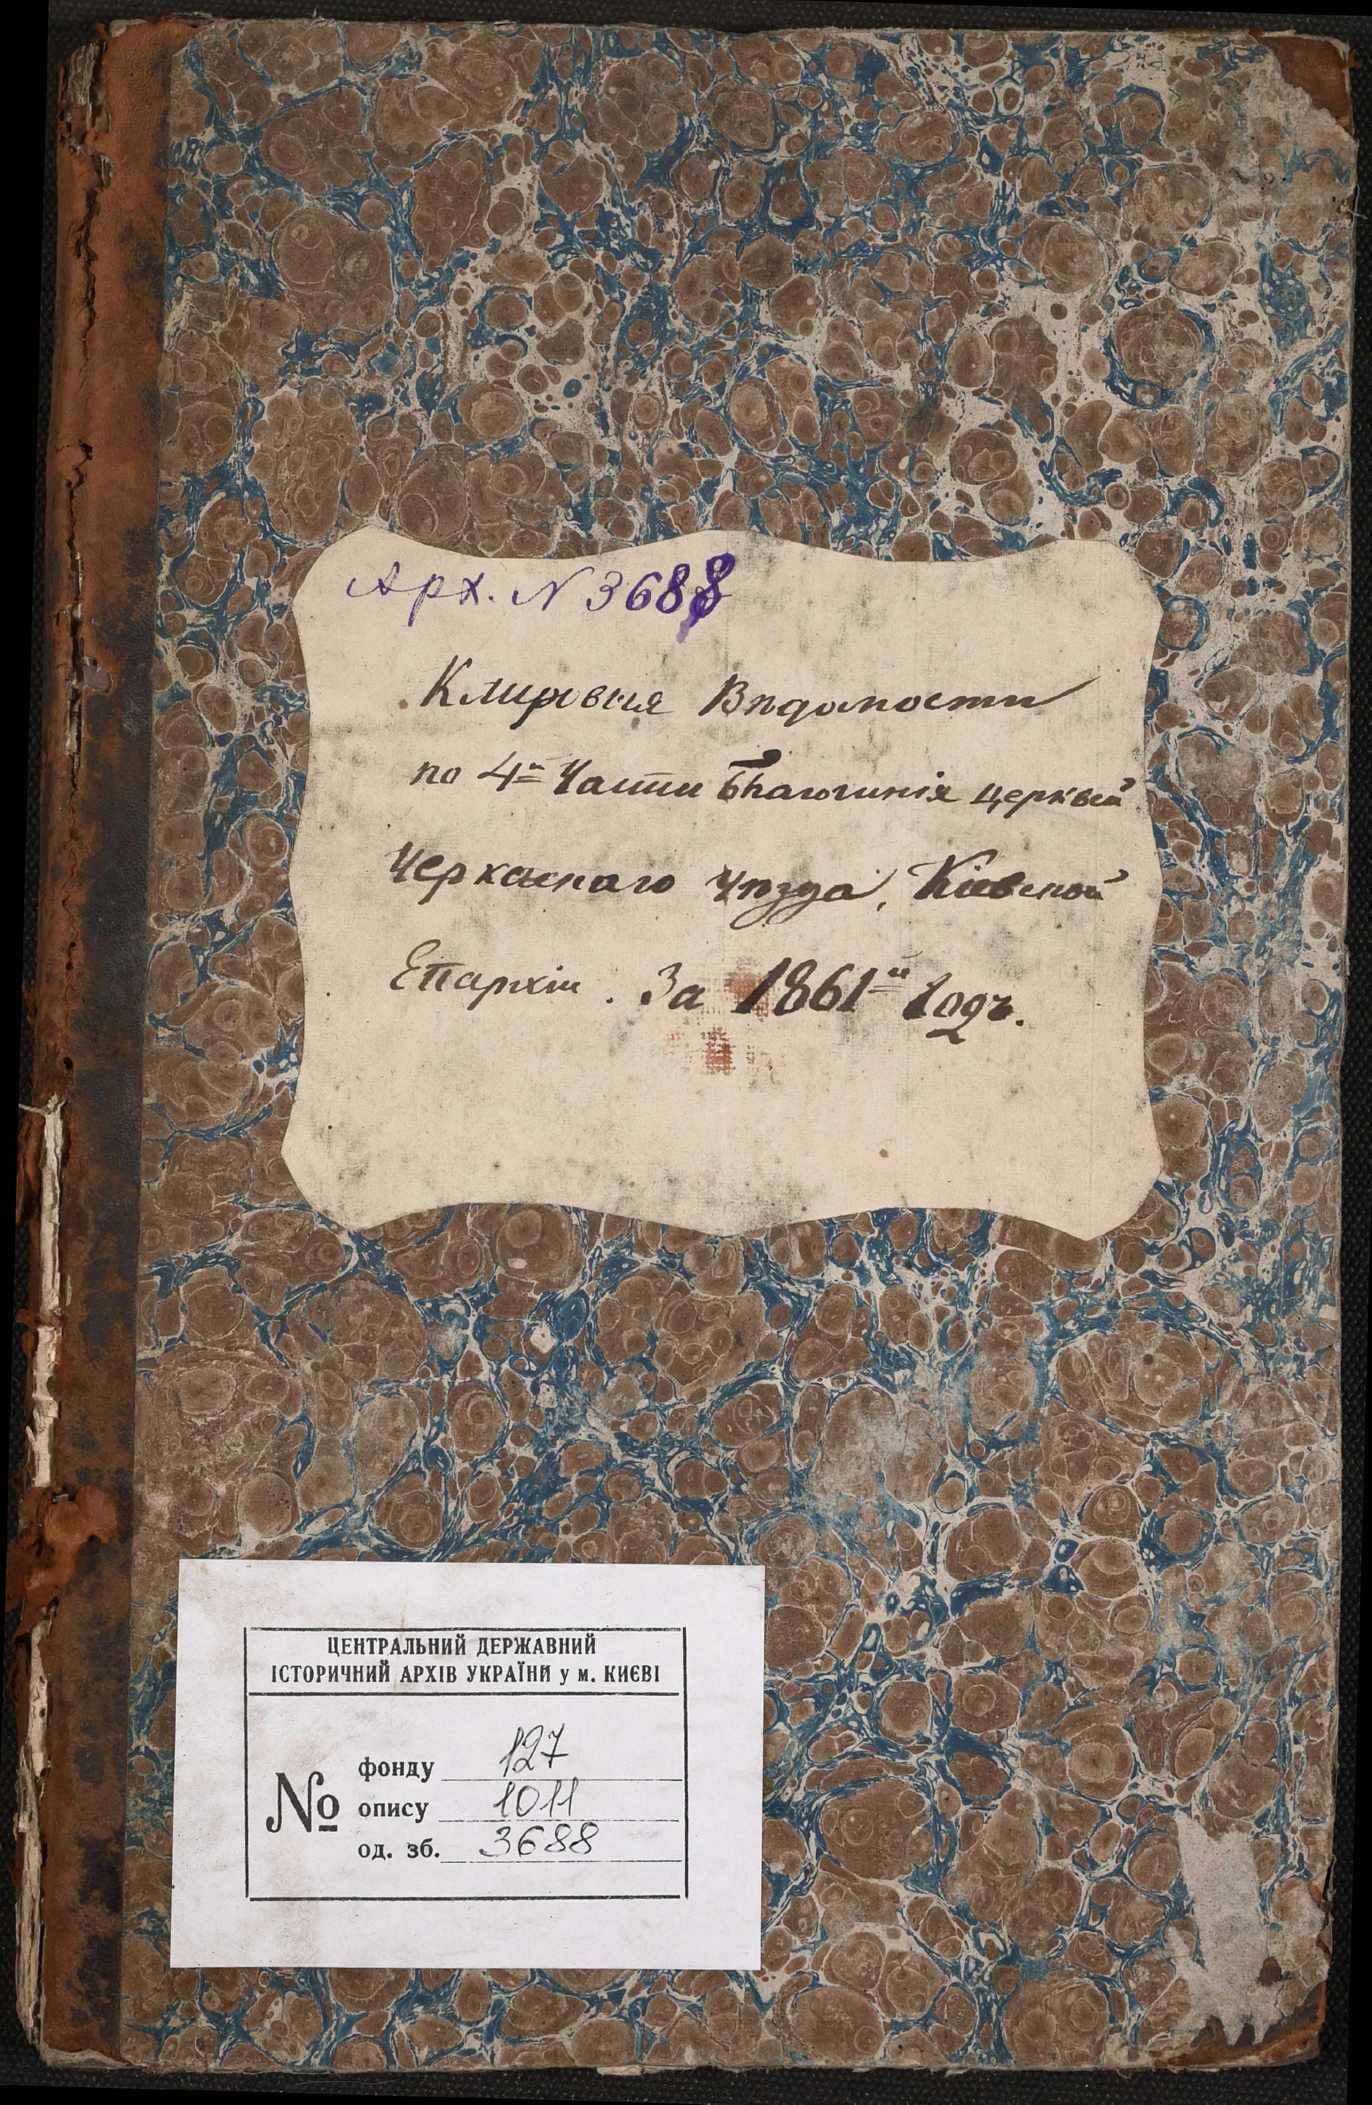 Арх. N 3688
Клировыя Вѣдомости
по 4й Части Благочинія церквей
Черкаскаго уѣзда, Кіевской
Епархіи. За 1861й Годъ.
ЦЕНТРАЛЬНИЙ ДЕРЖАВНИЙ
ІСТОРИЧНИЙ АРХІВ УКРАЇНИ у м. КИЄВІ
№
фонду 127
опису 1011
од. зб. 3688